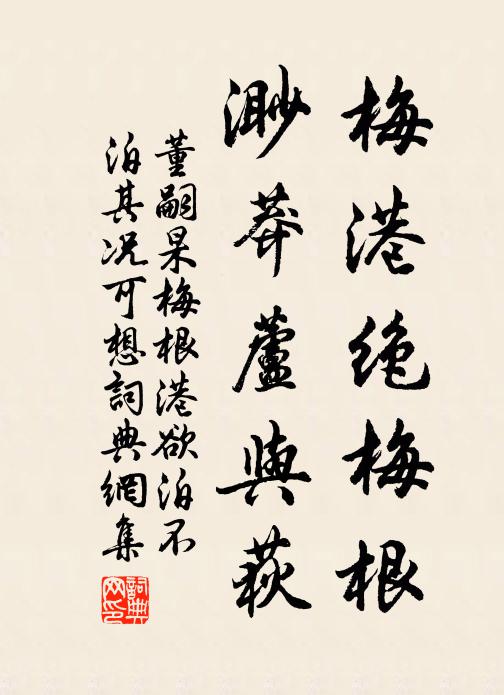 梅港绝梅根
渺莽蘆與荻
董嗣杲梅根港欲泊不
泊其况可想詞典網集
詞典网印